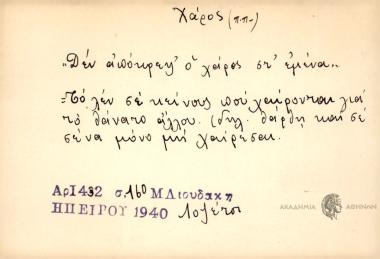 Χάρος (π.π.)
„Δέν ἀπόκρεψ' ὁ χάρος στ' ἐμένα„
Τὸ λέν σέ κείνους πού χαίρονται γιά
τὸ θάνατο ἄλλου. (δηλ. θάρθῃ καί σέ
σένα μόνο μή χαίρεσαι.
Αρ1432 σ.160 Μ Λιουδακη
ΗΠΕΙΡΟΥ 1940
ΑΚΑΔΗΜΙΑ ΑΘΗΝΩΝ